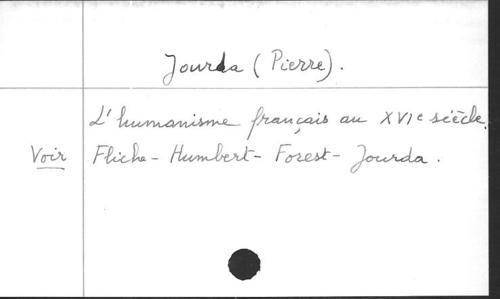 Jourda (Pierre).
L'humanisme français au XVIe siècle.
Voir Fliche - Humbert - Forest - Jourda.